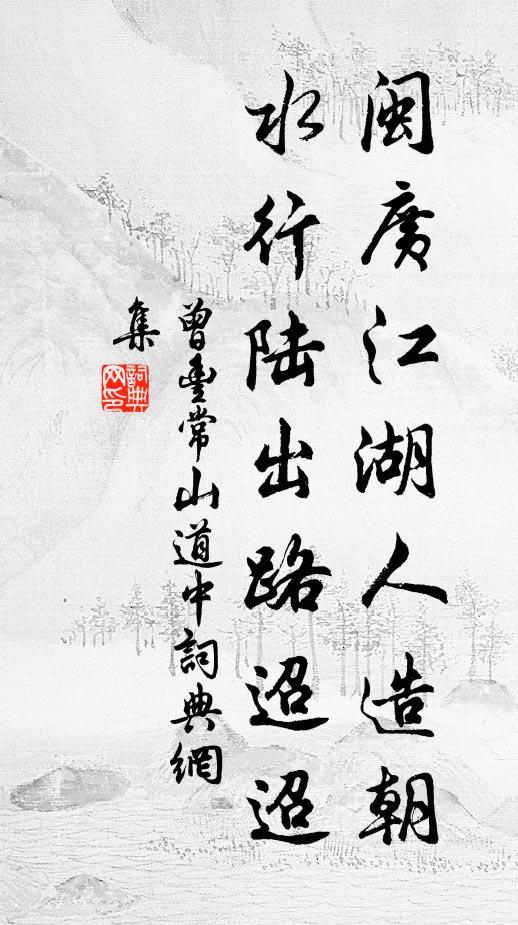 闽广江湖人造朝
水行陆出路迢迢
曾豊常山道中詞典網
集
詞典網印